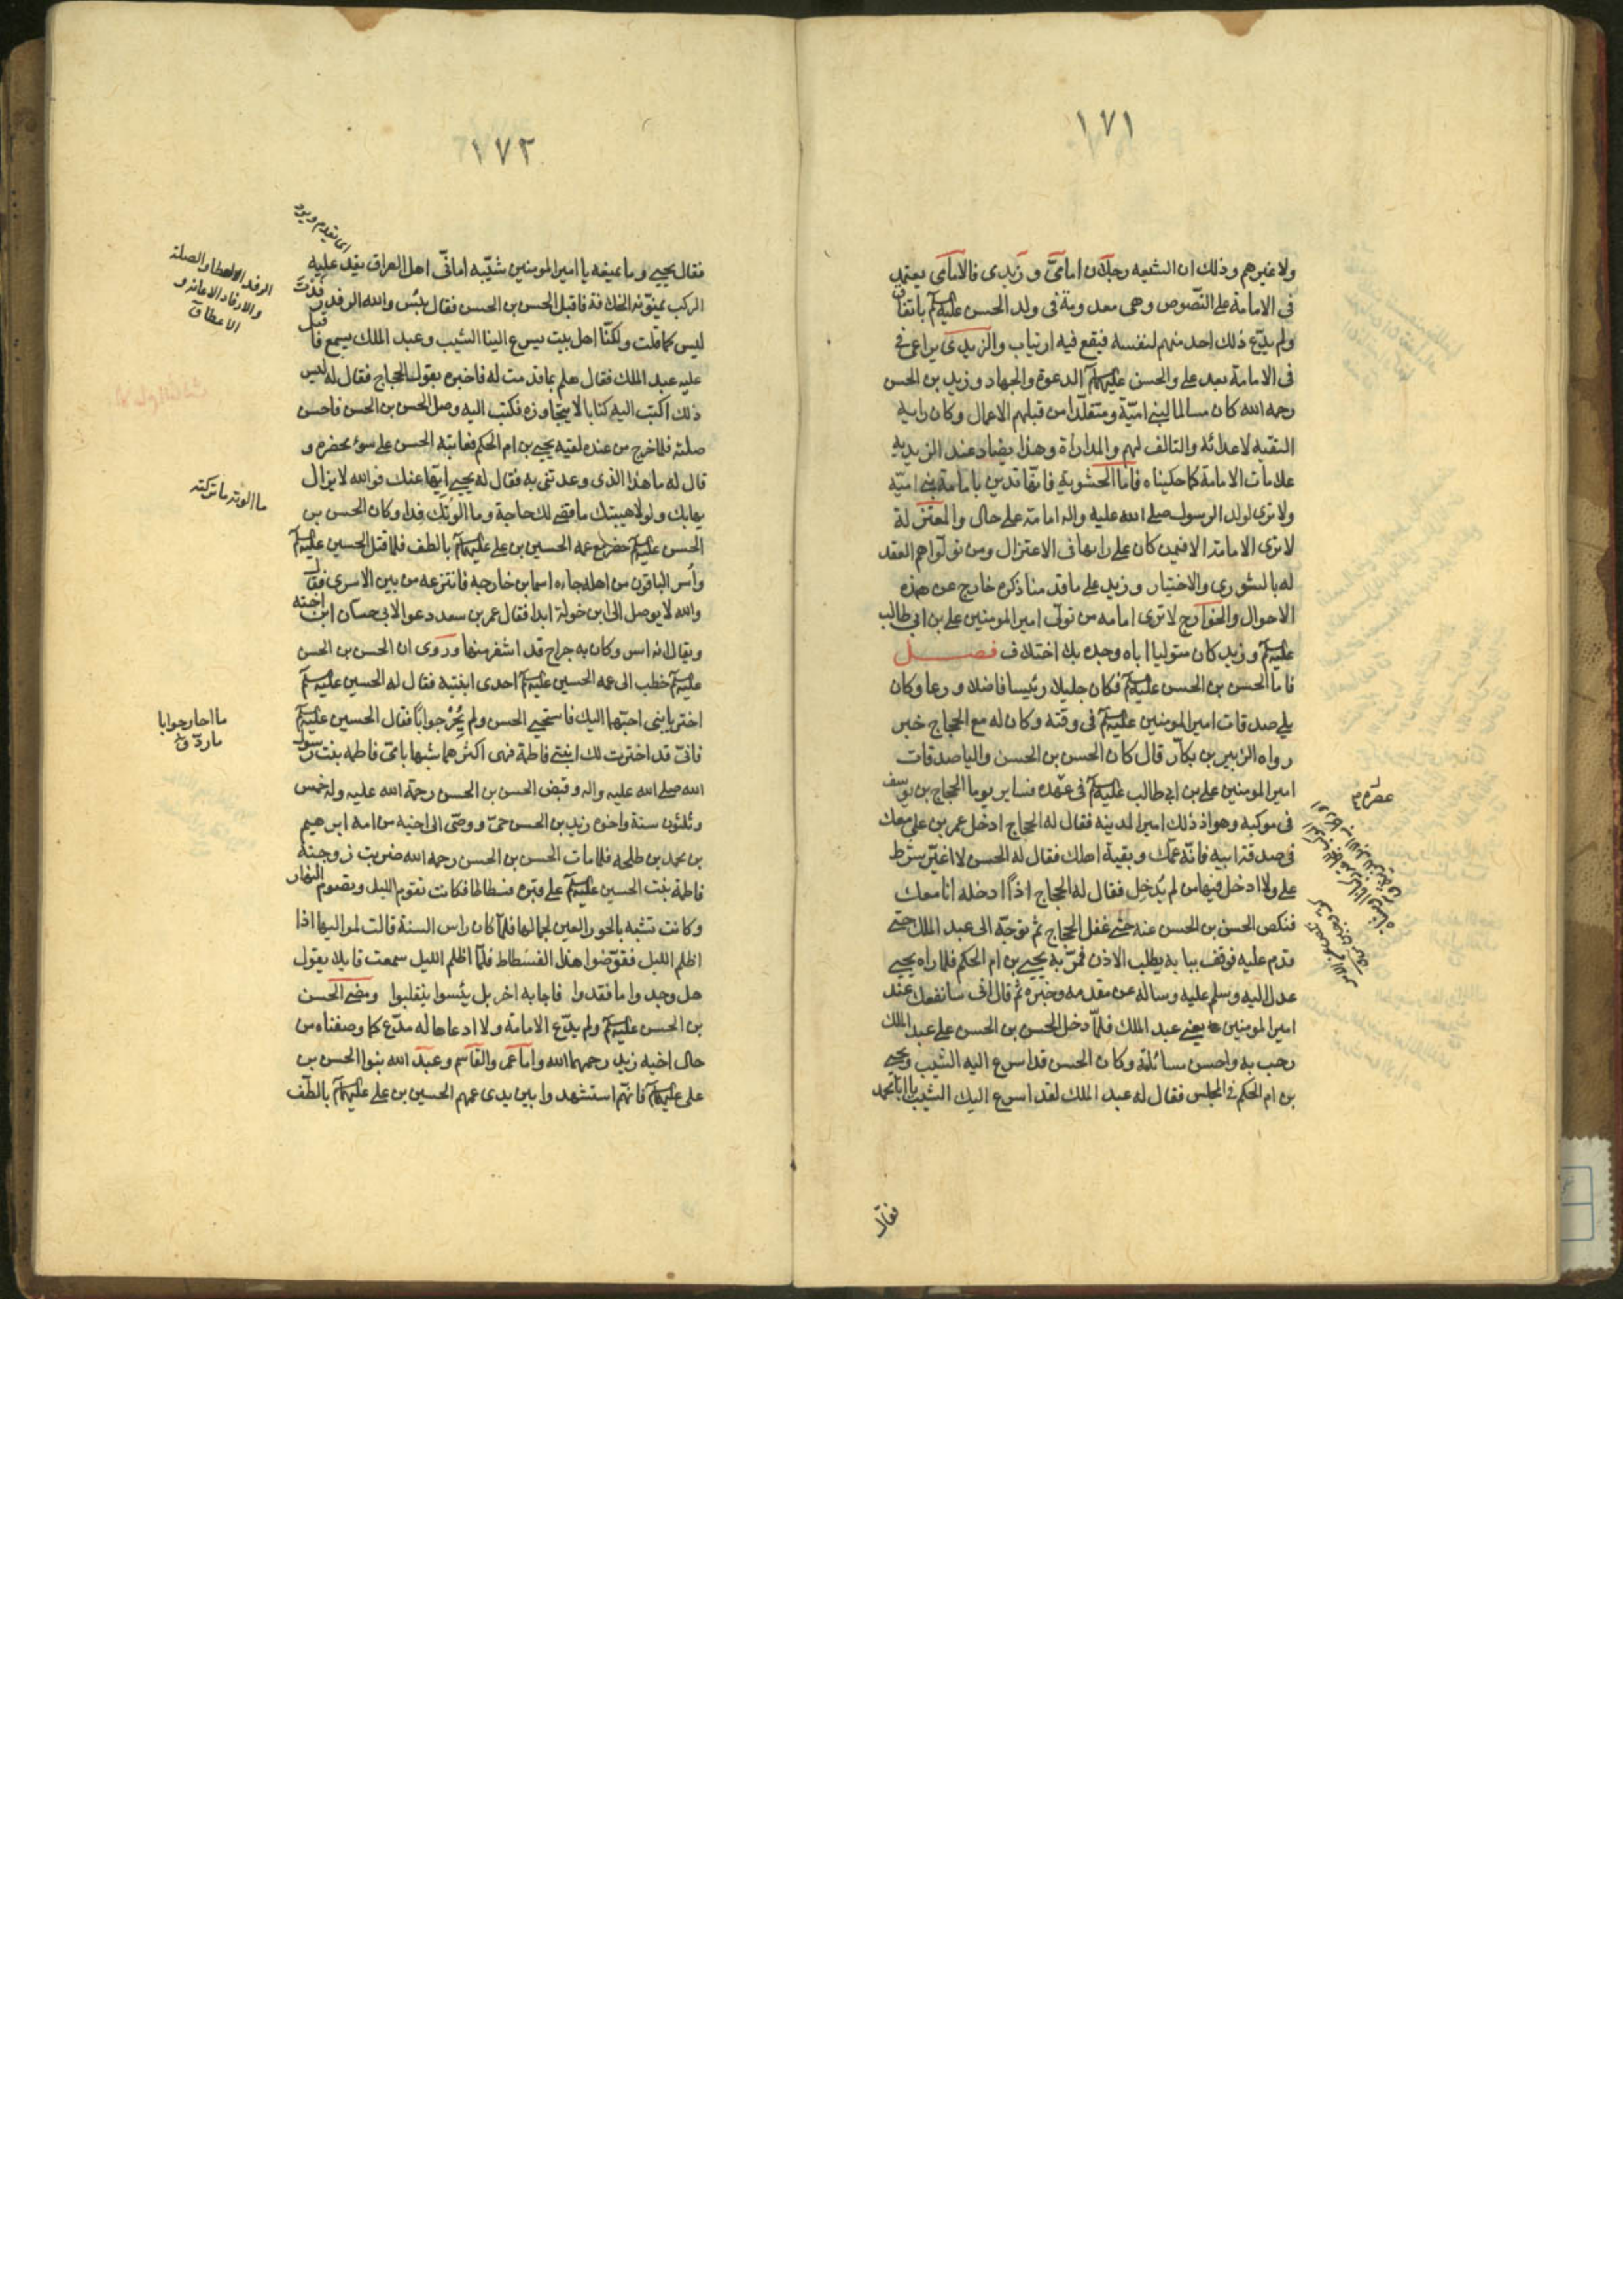 ١٧١
ولا غيرهم وذلك ان الشيعه رجلان امامىّ و زيدى فالامامى يعتمد
فى الامامة على النصوص وهى معدومة فى ولد الحسن عليهم باتفاق
ولم يدّع ذلك احد منهم لنفسه فيقع فيه ارتياب والزيدى يراعى
فى الامامة بعد على والحسن عليهما الدعوة والجهاد وزيد بن الحسن
رحمه الله كان مسالما لبنى اميّة ومتقلّدا من قبلهم الاعمال وكان رايه
التقيه لاعدائه والتالف لهم والمداراة وهذا يضاد عند الزيديه
علامات الامامة كما حكيناه فاما الحشوية فانها تدين بامامة بنى اميّه
ولا ترى لولد الرسول صلى الله عليه واله امامة على حال والمعتزلة
لا ترى الامامة الا فيمن كان على رايها فى الاعتزال ومن تولوا هم العقد
له بالشورى والاختيار وزيد على ما قدمنا ذكره خارج عن هذه
الاحوال والخوارج لا ترى امامه من تولى امير المومنين على بن ابى طالب
عليهم وزيد كان متوليا اباه وجده بلا اختلاف فصل
فاما الحسن بن الحسن عليهم فكان جليلا رئيسا فاضلا ورعا وكان
يلى صدقات امير المومنين عليهم فى وقته وكان له مع الحجاج خبر
رواه الزبير بن بكار قال كان الحسن بن الحسن واليا صدقات
امير المومنين على بن ابى طالب عليهم فى عهده فساير يوما الحجاج بن يوسف
فى موكبه وهو اذ ذلك امير المدينه فقال له الحجاج ادخل عمر بن على معك
فى صدقة ابيه فانّه عمّك وبقية اهلك فقال له الحسن لا اغيّر شرط
على ولا ادخل فيها من لم يُدخِل فقال له الحجاج اذًا ادخله انا معك
فنكص الحسن بن الحسن عنه حتى غفل الحجاج ثم توجّه الى عبد الملك حتى
قدم عليه فوقف ببابه يطلب الاذن فمرّ به يحيى بن ام الحكم فلما راه يحيى
عدل اليه وسلم عليه وساله عن مقدمه وخبره ثم قال انى سانفعك عند
امير المومنين يعنى عبد الملك فلمّا دخل الحسن بن الحسن على عبد الملك
رحب به واحسن مسائلته وكان الحسن قد اسرع اليه الشيب ويحيى
بن ام الحكم فى المجلس فقال له عبد الملك لقد اسرع اليك الشيب يا ابا محمد
عصره
فقال
١٧٢
فقال يحيى وما يمنعه يا امير المومنين شيّبه امانىّ اهل العراق يفد عليه
الركب يمنّونه الخلافة فاقبل الحسن بن الحسن فقال بئس والله الرفد رفدت
ليس كما قلت ولكنّا اهل بيت يسرع الينا الشيب وعبد الملك يسمع فاقبل
عليه عبد الملك فقال هلم بما قدمت له فاخبره بقول الحجاج فقال له ليس
ذلك اكتب اليه كتابا لا يتجاوزه فكتب اليه ووصل الحسن بن الحسن فاحسن
صلته فلما خرج من عنده لقيه يحيى بن ام الحكم فعاتبه الحسن على سوء محضره و
قال له ما هذا الذى وعدتنى به فقال له يحيى ايها عنك فوالله لا يزال
يهابك ولولا هيبتك ما قضى لك حاجة وما الوتك رفدا وكان الحسن بن
الحسن عليهم حضر مع عمه الحسين بن على عليهما بالطف فلما قتل الحسين عليهم
واُسر الباقون من اهله جاءه اسما بن خارجه فانتزعه من بين الاسرى فقال
والله لا يوصل الى ابن خولة ابدا فقال عمر بن سعد دعوا لابى حسان ابن اخته
ويقال انه اسر وكان به جراح قد اشفى منها وروى ان الحسن بن الحسن
عليهم خطب الى عمه الحسين عليهم احدى ابنتيه فقال له الحسين عليهم
اختر يا بنى احبّهما اليك فاستحيى الحسن ولم يُحِرْ جوابًا فقال الحسين عليهم
فانّى قد اخترت لك ابنتى فاطمة فهى اكثرهما شبها بامّى فاطمه بنت رسول
الله صلى الله عليه واله وقبض الحسن بن الحسن رحمة الله عليه وله خمس
وثلثون سنة واخوه زيد بن الحسن حىّ ووصّى الى اخيه من امه ابراهيم
بن محمد بن طلحه فلما مات الحسن بن الحسن رحمه الله ضربت زوجته
فاطمة بنت الحسين عليهم على قبره فسطاطا فكانت تقوم الليل وتصوم النهار
وكانت تشبه بالحور العين لجمالها فلمّا كان راس السنة قالت لمواليها اذا
اظلم الليل فقوّضوا هذا الفسطاط فلمّا اظلم الليل سمعت قايلا يقول
هل وجدوا ما فقدوا فاجابه اخر بل يئسوا ينقلبوا ومضى الحسن
بن الحسن عليهم ولم يدّع الامامة ولا ادعاها له مدّع كما وصفناه من
حال اخيه زيد رحمهما الله واما عمر والقاسم وعبد الله بنوا الحسن بن
على عليهما فانّهم استشهدوا بين يدى عمهم الحسين بن على عليهما بالطّف
اى تقدم و يرد
الرفد العطا والصلة
والارفاد الاعانة و
الاعطا ق
ما الوته ما تركته
ما احار جوابا
ما ردّ ق